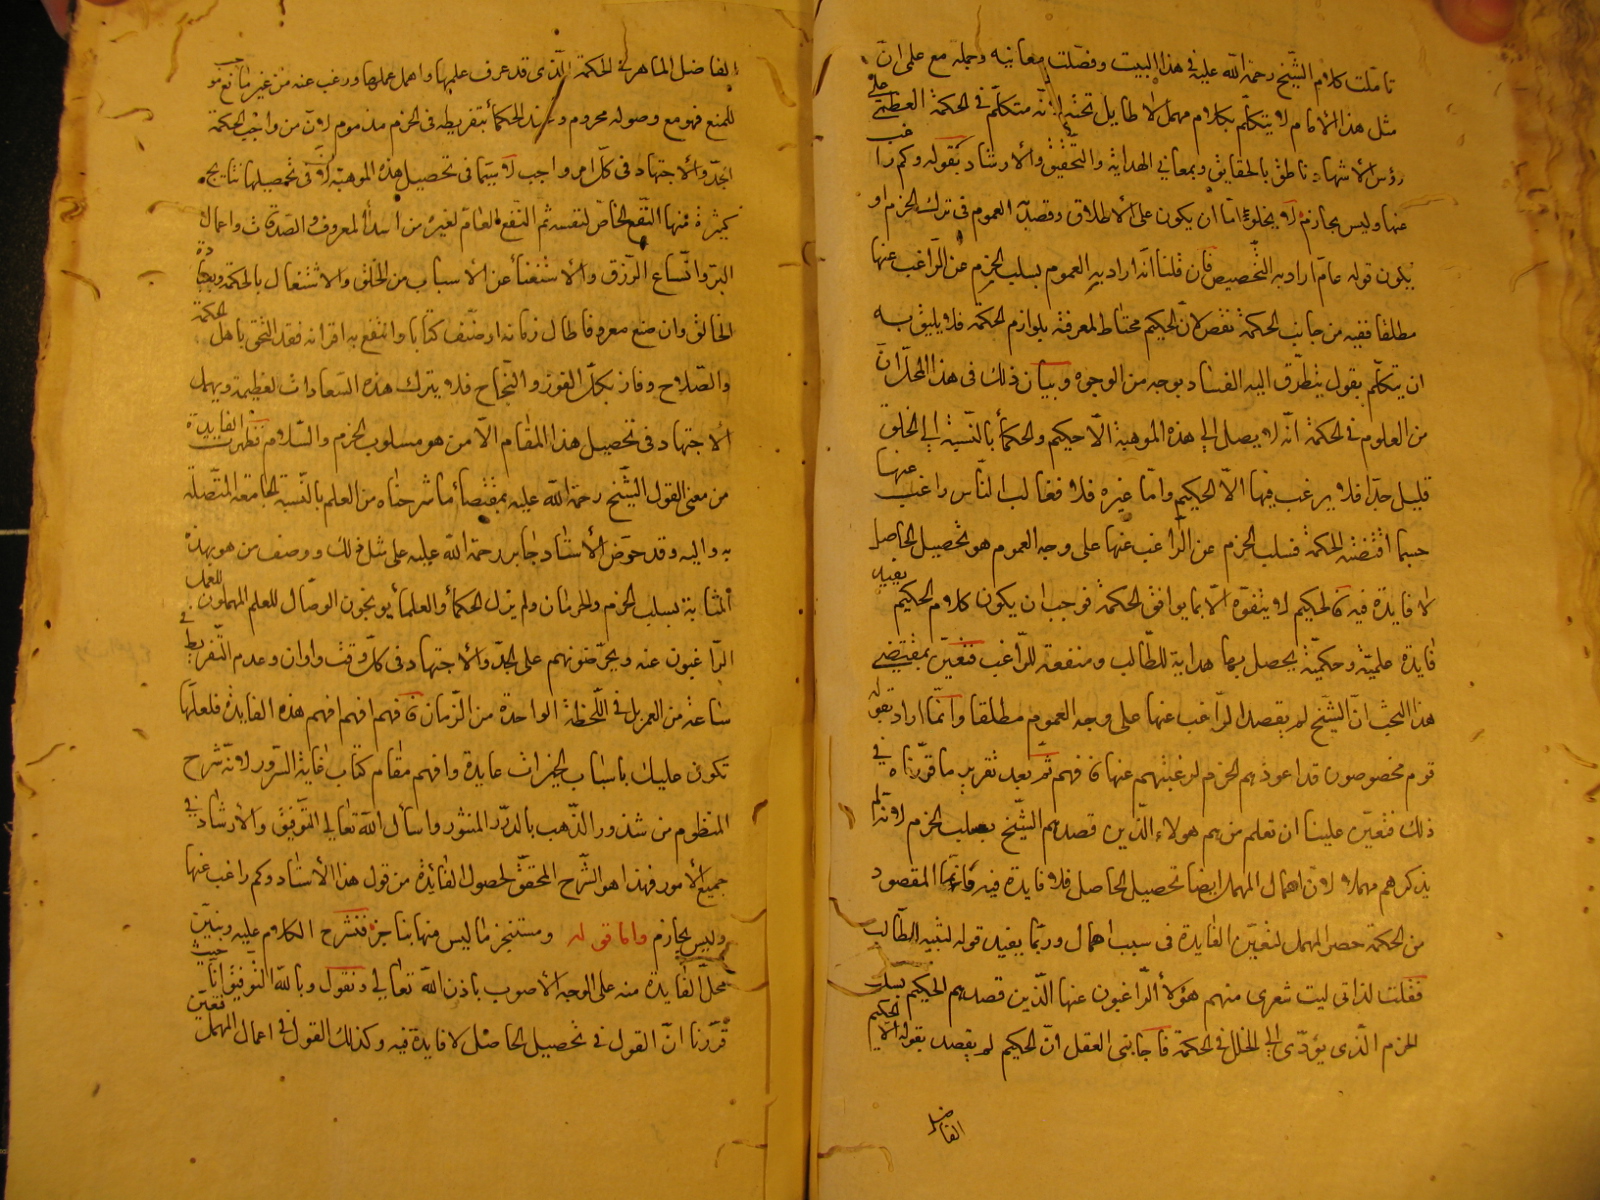 تاملت كلام الشيخ رحمة الله عليه في هذا البيت وفصلت معانيه وجمله مع على انّ
مثل هذا الامام لا يتكلّم بكلام مهمل لا طايل تحته لانّه متكلّم في الحكمة العظمى على
رؤس الاشهاد ناطق بالحقايق وبمعاني الهداية والتحقيق والارشاد بقوله وكم راغب
عنها وليس بحازم لا يخلو امّا ان يكون على الاطلاق وقصد العموم في ترك الحزم او
يكون قوله عام اراد به التخصيص فان قلنا انّه اراد به العموم بسلب الحزم عن الرّاغب عنها
مطلقا ففيه من جانب الحكمة نقص لانّ الحكيم محتاط لمعرفة بلوازم الحكمة فلا يليق به
ان يتكلّم بقول يتطرّق اليه الفساد بوجه من الوجوه وبيان ذلك في هذا المحلّ انّ
من العلوم في الحكمة انّه لا يصل الى هذه الموهبة الّا حكيم والحكمأ بالنّسبة الى الخلق
قليل جدّا فلا يرغب فيها الّا الحكيم وامّا غيره فلا فغالب النّاس راغب عنها
حسبما اقتضته الحكمة فسلب الحزم عن الرّاغب عنها على وجه العموم هو تحصيل الحاصل
لا فايدة فيه فالحكيم لا يتفوّه الّا بما يوافق الحكمة فوجب ان يكون كلام الحكيم يفيد
فايدة علميّة وحكميّة يحصل بها هداية للطّالب ومنفعة للرّاغب فتعيّن بمقتضى
هذا البحث انّ الشيخ لم يقصد الرّاغب عنها على وجه العموم مطلقا وانّما اراد بقوله
قوم مخصوصون قد اعوذهم الحزم لرغبتهم عنها فافهم ثمّ بعد تقرير ما قرّرناه في
ذلك فتعيّن علينا ان تعلم من هم هولاء الّذين قصدهم الشّيخ بسلب الحزم لانّه لم
يذكرهم مهملا لانّ اهمال المهمل ايضا تحصيل الحاصل فلا فايدة فيه فانّما المقصود
من الحكمة حصر المهمل لتعيّن الفايدة في سبب اهمال وربّما يفيد قوله لتنبيه الطّالب
فقلت لذاتى ليت شعرى منهم هؤلأ الرّاغبون عنها الّذين قصدهم الحكيم بسلب
الحزم الّذى يؤدّى الى الخلل في الحكمة فاجابنى العقل انّ الحكيم لم يقصد بقوله الّا الحكيم
الفاضل
الفاضل الماهر في الحكمة الّذى قد عرف علمها واهمل عملها ورغب عنه من غير مانع موجب
للمنع فهو مع وصوله محروم وعند الحكمأ بتفريطه في الحزم مذموم لانّ من واجب الحكمة
الجدّ والاجتهاد في كلّ امر واجب لا سيّما في تحصيل هذه الموهبة لانّ في تحصيلها نتايج
كثيرة فمنها النّفع الخاصّ لنفسه ثم النّفع العامّ لغيره من اسدأ المعروف والصّدقات واعمال
البرّ واتّساع الرّزق والاستغنأ عن الاسباب من الخلق والاشتغال بالحكمة وبعبادة
الخالق وان صنع معروفا طال زمانه او صنّف كتابا وانتفع به اقرانه فقد التحق باهل الحكمة
والصّلاح وفاز بكلّ الفوز والنّجاح فلا يترك هذه السّعادات العظيمة ويهمل
الاجتهاد في تحصيل هذا المقام الّا من هو مسلوب الحزم والسّلام فظهرت الفايدة
من معنى القول الشّيخ رحمة الله عليه بمقتضأ ما شرحناه من العلم بالنّسبة الجامعة المتّصلة
به واليه وقد حرّض الاستاد جابر رحمة الله عليه على مثل ذلك ووصف من هو بهذه
المثابة بسلب الحزم والحرمان ولم يزل الحكمأ والعلمأ يوبخون الوصّال للعلم المهملون للعمل
الرّاغبون عنه ويحرّضونهم على الجدّ والاجتهاد في كلّ وقت واوان وعدم التّفريط في
ساعة من العمر بل في اللّحظة الواحدة من الزّمان فافهم افهم افهم هذه الفايدة فلعلّها
تكون عليك باسباب الخيرات عايدة وافهم مقام كتاب غاية السّرور لانّه شرح
المنظوم من شذور الذّهب بالدّرر المنثور واسأل الله تعالى التّوفيق والارشاد في
جميع الامور فهذا هو الشّرح المحقّق لحصول الفائدة من قول هذا الاستاد وكم راغب عنها
وليس بحازم وامّا قوله ومستنجز ما ليس منها بناجز فنشرح الكلام عليه ونبيّن
محلّ الفايدة منه على الوجه الاصوب باذن الله تعالى ونقول وبالله التّوفيق انّا حيث
قرّرنا انّ القول في تحصيل الحاصل لا فايدة فيه وكذلك القول في اعمال المهمل فتعيّن